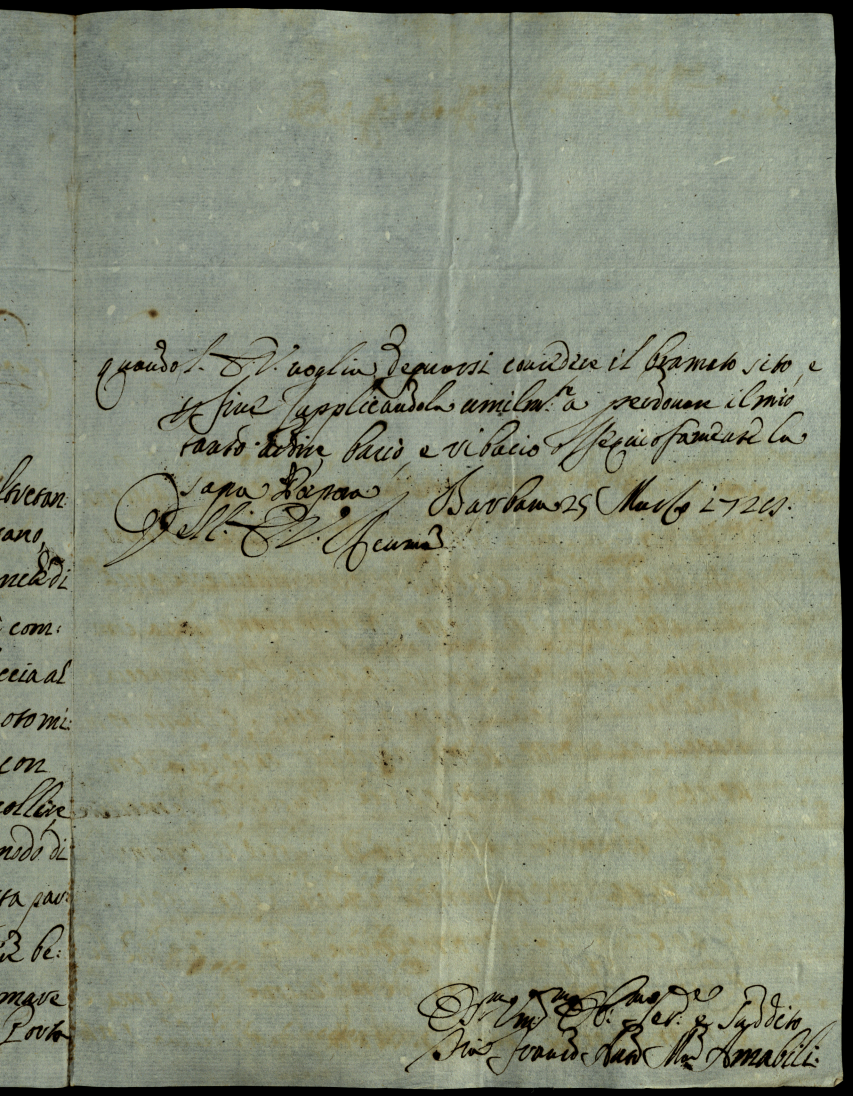 lsveran
gano,
com:
eccia al
oto mi:
con
collire
modo di
sta par:
be:
mare
Porto
quando l. E.V. voglia degnarsi concedere il bramato sito, e
fine supplicandola umilm.te a perdonare il mio
tanto ardire bacio, e ribacio ossequiosamente la
sacra Porpora
Barbara 25 Marzo 172
Dell. E.V. Reuma
Dmo Umo Obmo Ser.e e Suddito
Franco Mar Amabili.